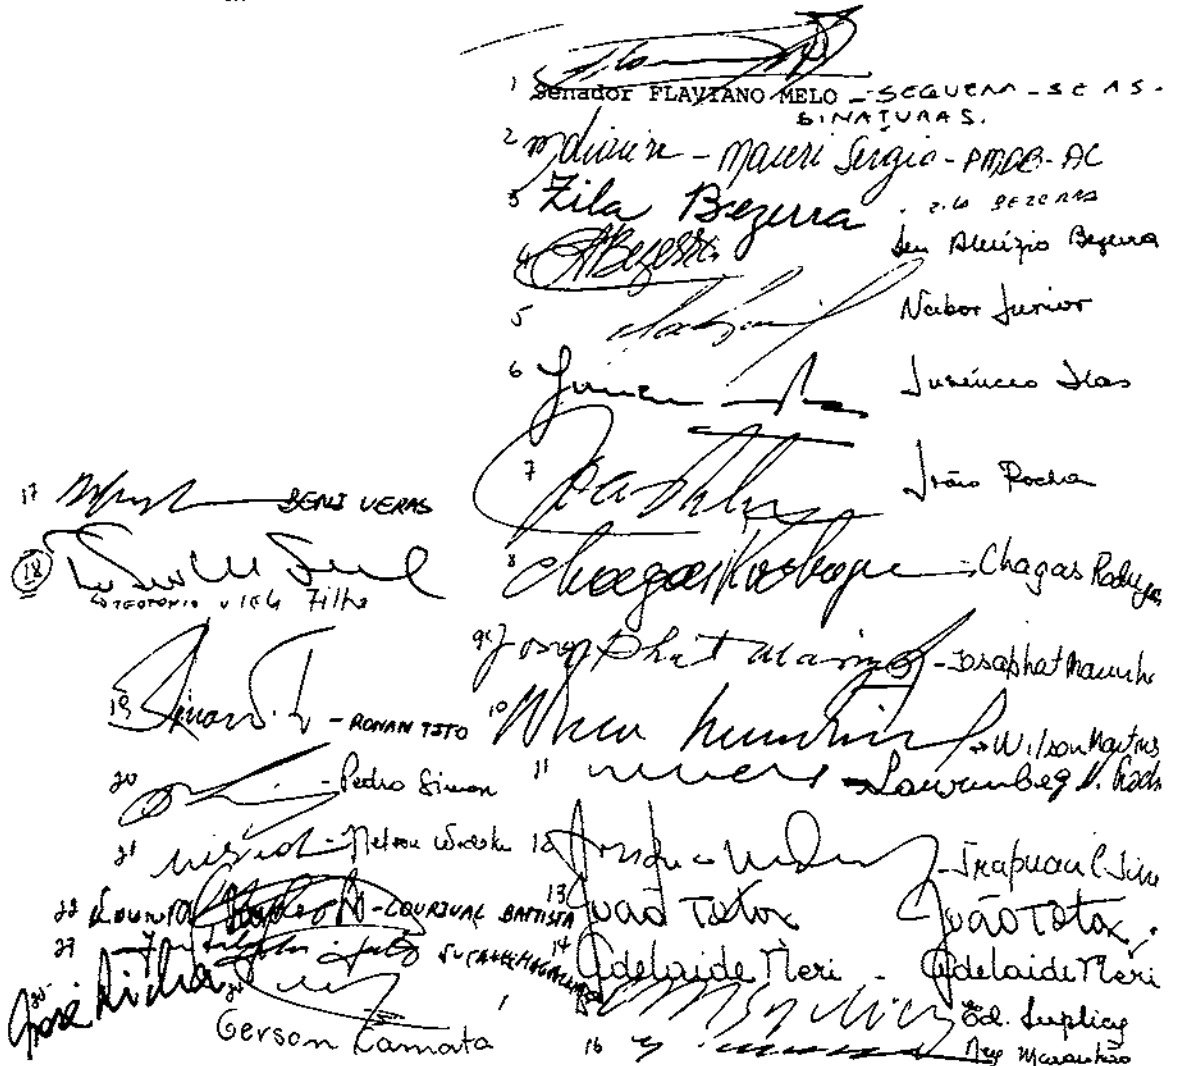 1 Senador FLAVIANO MELO - SEGUEM-SE AS-
SINATURAS.
2 - Mauri Sérgio - PMDB-AC
3 Zila Bezerra
4 ABezerra Sen Aluízio Bezerra
5 Nabor Junior
6 Juvêncio Dias
7 João Rocha
8 Chagas Rodrigues - Chagas Rodrigues
9 Josaphat Marinho - Josaphat Marinho
10 Wilson Martins
11 - Louremberg N. Rocha
12 - Irapuan C. Júnior
13 João Totó João Totó
14 Adelaide Neri - Adelaide Neri
Ed. Suplicy
16 Ney Maranhão
17 BENI VERAS
18 TEOTONIO VILELA Filho
19 - RONAN TITO
20 - Pedro Simon
21 - Nelson Wedekin
22 - LOURIVAL BAPTISTA
23 JUTAHY MAGALHÃES
Gerson Camata
José Richa